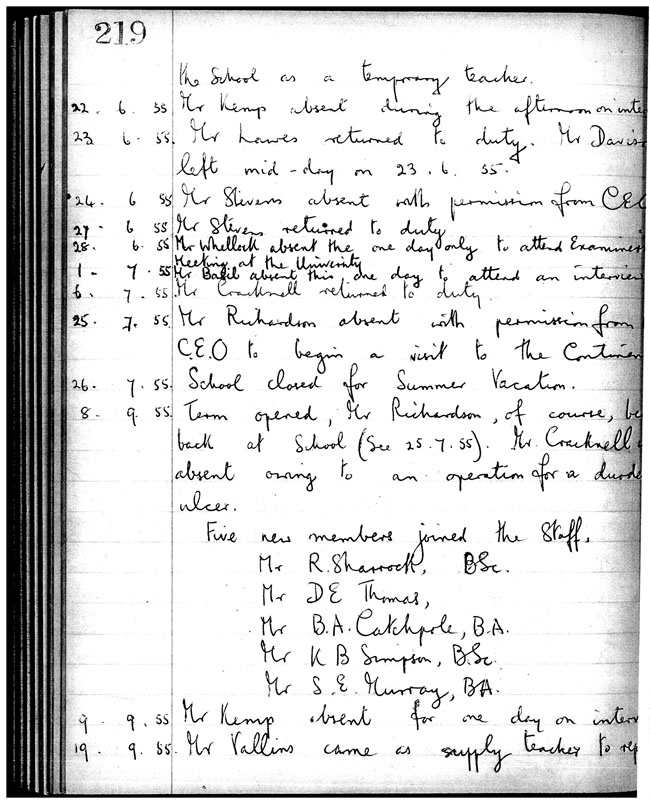 219
the School as a temporary teacher.
22. 6. 55 Mr Kemp absent during the afternoon on inte
23 6. 55. Mr Lawes returned to duty. Mr Davis
left mid-day on 23. 6. 55.
24. 6 55 Mr Stevens absent with permission from CEO
27. 6 55 Mr Stevens returned to duty
28. 6. 55 Mr Whellock absent the one day only to attend Examiners
Meeting at the University
1. 7. 55 Mr absent this one day to attend an interview
6. 7. 55. Mr Cracknell returned to duty.
25. 7. 55. Mr Richardson absent with permission from
C.E.O to begin a visit to the Continen
26. 7. 55. School closed for Summer Vacation.
8. 9. 55. Term opened, Mr Richardson, of course, be
back at School (See 25.7.55). Mr. Cracknell
absent owing to an operation for a duode
ulcer.
Five new members joined the Staff,
Mr R. Sharrock, BSc.
Mr D E Thomas,
Mr B.A. Catchpole, B.A.
Mr K B Simpson, B.Sc.
Mr S.E. Murray, BA.
9 9. 55 Mr Kemp absent for one day on interv
19. 9. 55. Mr Vallins came as supply teacher to rep